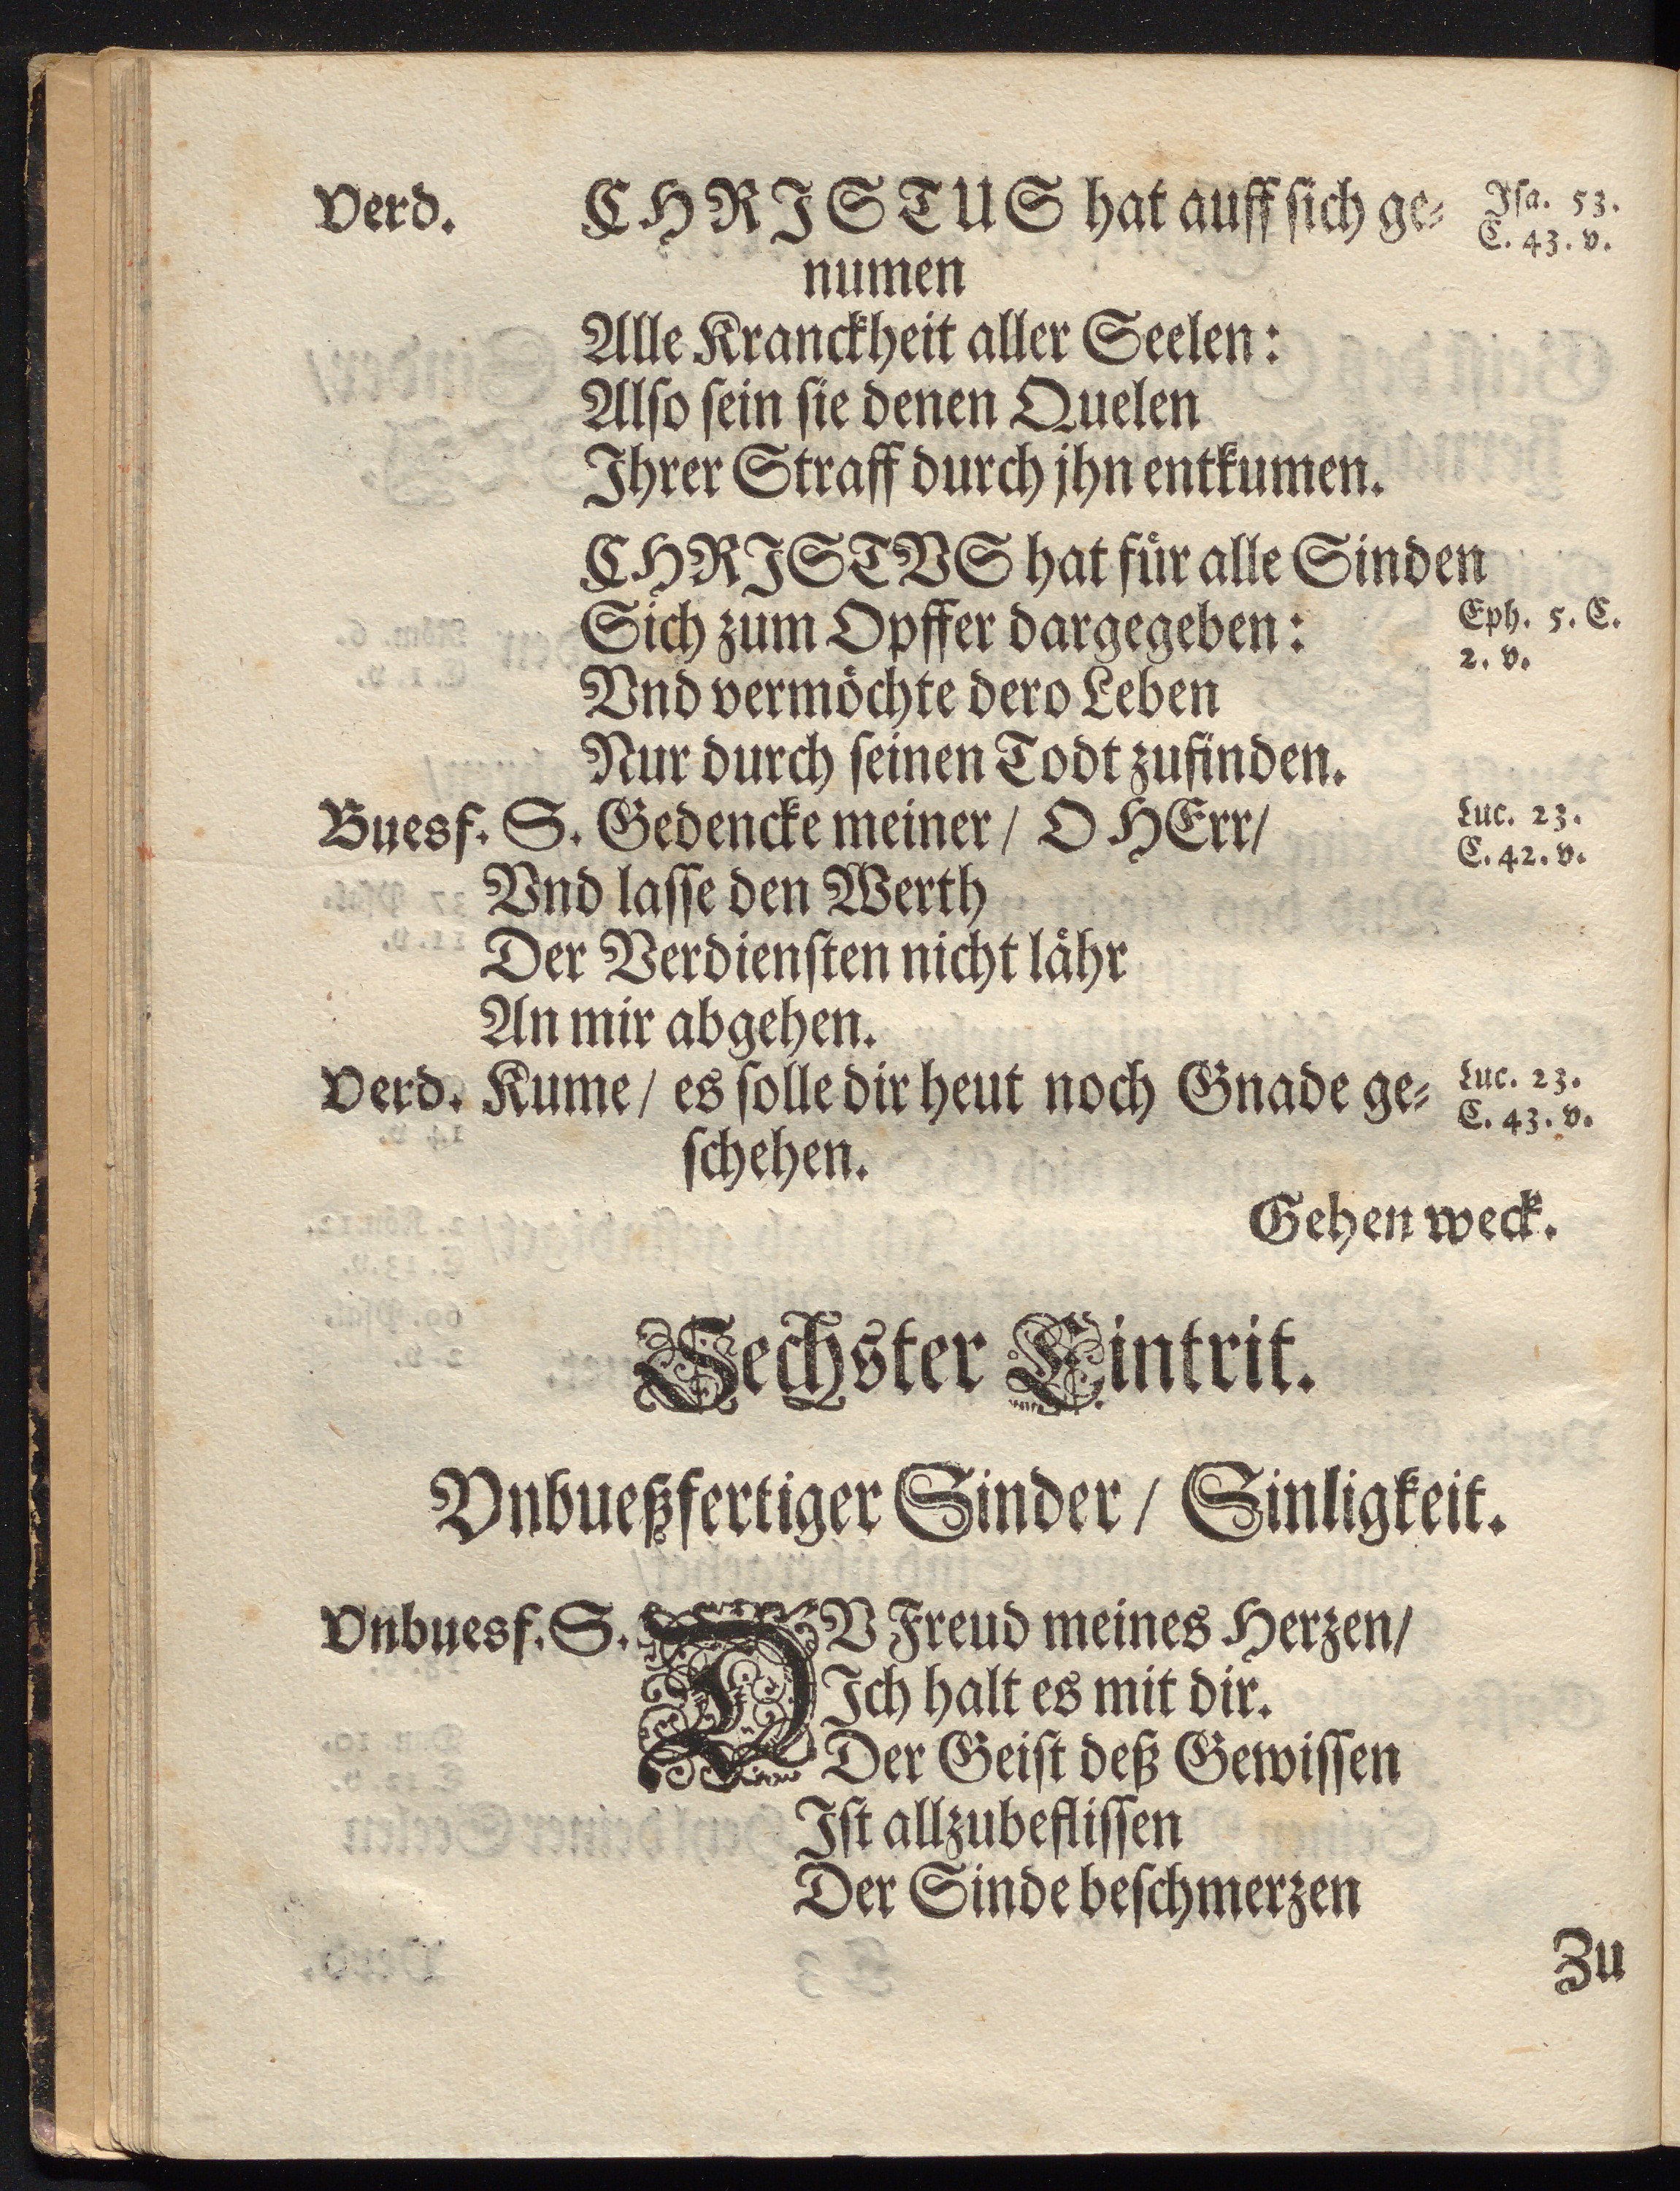 Verd. CHRISTUS hat auff sich ge= Jsa. 53.
C. 43. v.
numen
Alle Kranckheit aller Seelen:
Also sein sie denen Quelen
Jhrer Straff durch jhn entkumen.
CHRISTVS hat für alle Sinden
Sich zum Opffer dargegeben: Eph. 5. C.
2. v.
Vnd vermöchte dero Leben
Nur durch seinen Todt zufinden.
Buesf. S. Gedencke meiner / O HErr/ Luc. 23.
C. 42. v.
Vnd lasse den Werth
Der Verdiensten nicht lähr
An mir abgehen.
Verd. Kume / es solle dir heut noch Gnade ge= Luc. 23.
C. 43. v.
schehen.
Gehen weck.
Sechster Eintrit.
Vnbueßfertiger Sinder / Sinligkeit.
Vnbuesf. S. DV Freud meines Herzen/
Jch halt es mit dir.
Der Geist deß Gewissen
Jst allzubeflissen
Der Sinde beschmerzen
Zu